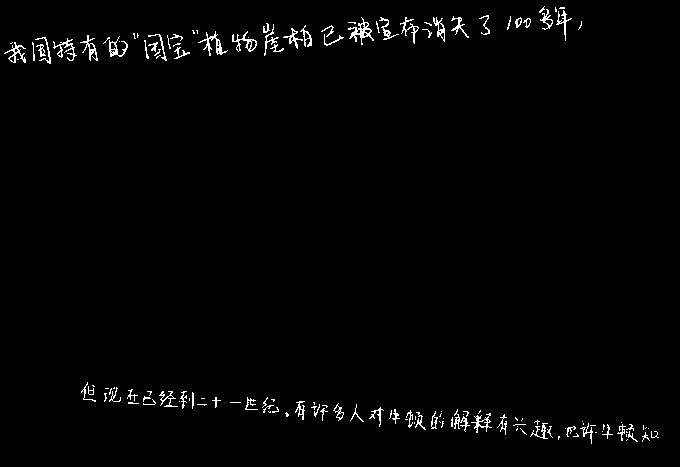 我国特有的"国宝"植物崖柏已被宣布消失了100多年,
但现在已经到二十一世纪,有许多人对牛顿的解释有兴趣,也许牛顿知